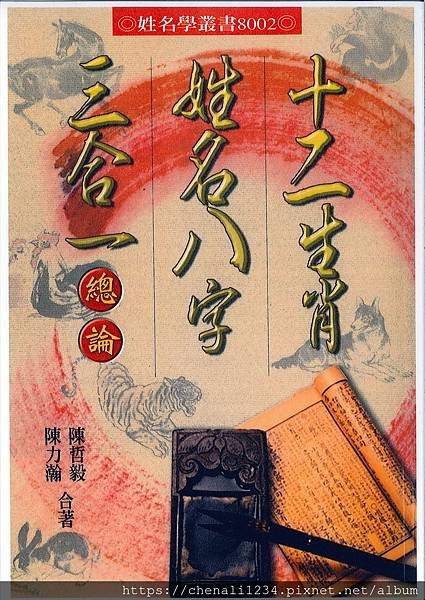 ◎姓名學叢書8002◎
十二生肖
姓名八字
三合一
總論
陳哲毅
陳力瀚
合著
https://chenali1234.pixnet.net/album